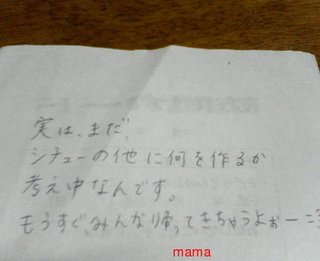 実は、まだ、
シチューの他に何を作るか
考え中なんです。
もうすぐ、みんな帰ってきちゃうよぉー
mama